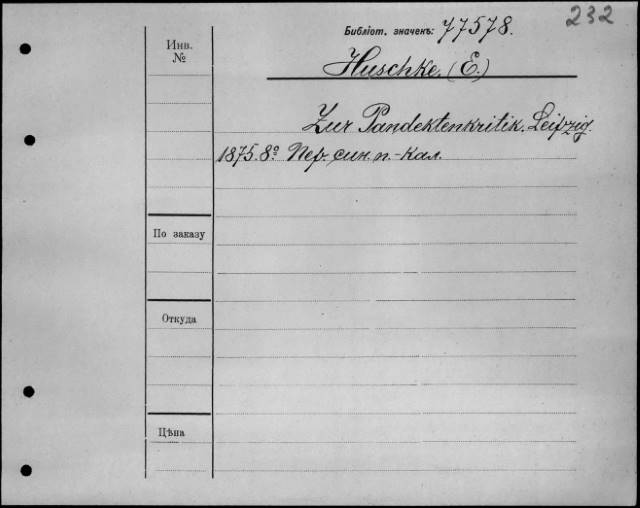 232
Библіот. значекъ: 77578.
Инв.
№
Huschke. (E.)
Zur Pandektenkritik. Leipzig.
1875. 8º Пер. син. п.-кал.
По заказу
Откуда
Цѣна